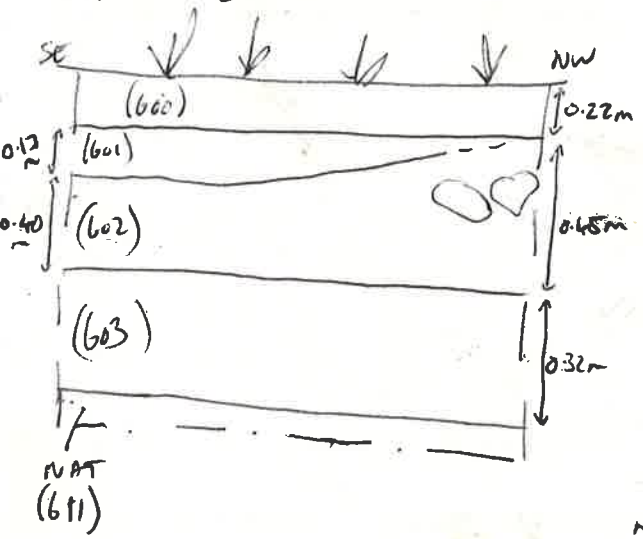 SE NW
(600) 0.22m
(601)
0.40m (602) 0.45m
(603) 0.32m
NAT
(611)